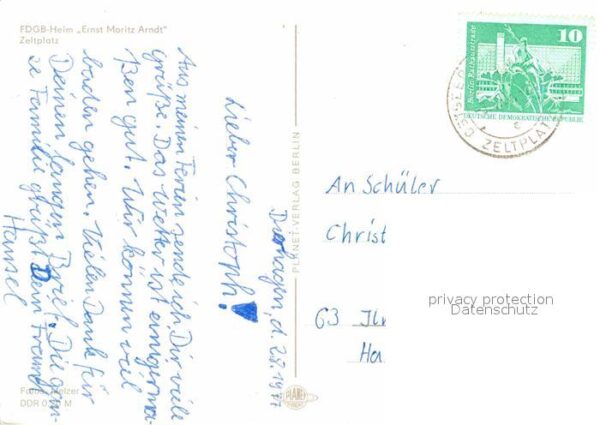 FDGB-Heim „Ernst Moritz Arndt"
Zeltplatz
Dierhagen, d.
Lieber Christoph!
Aus meinen Ferien sende ich Dir viele
Grüße. Das Wetter ist einigerma-
ßen gut. Wir können viel
baden gehen. Vielen Dank für
Deinen langen Brief. Die gan-
ze Familie grüßt Dein Freund
Hansel
DDR
M
PLANET-VERLAG BERLIN
PLANET
10
Berlin, Rathausstraße
DEUTSCHE DEMOKRATISCHE REPUBLIK
ZELTPLATZ
An Schüler
Christ
63 Ilm
Ha
privacy protection
Datenschutz